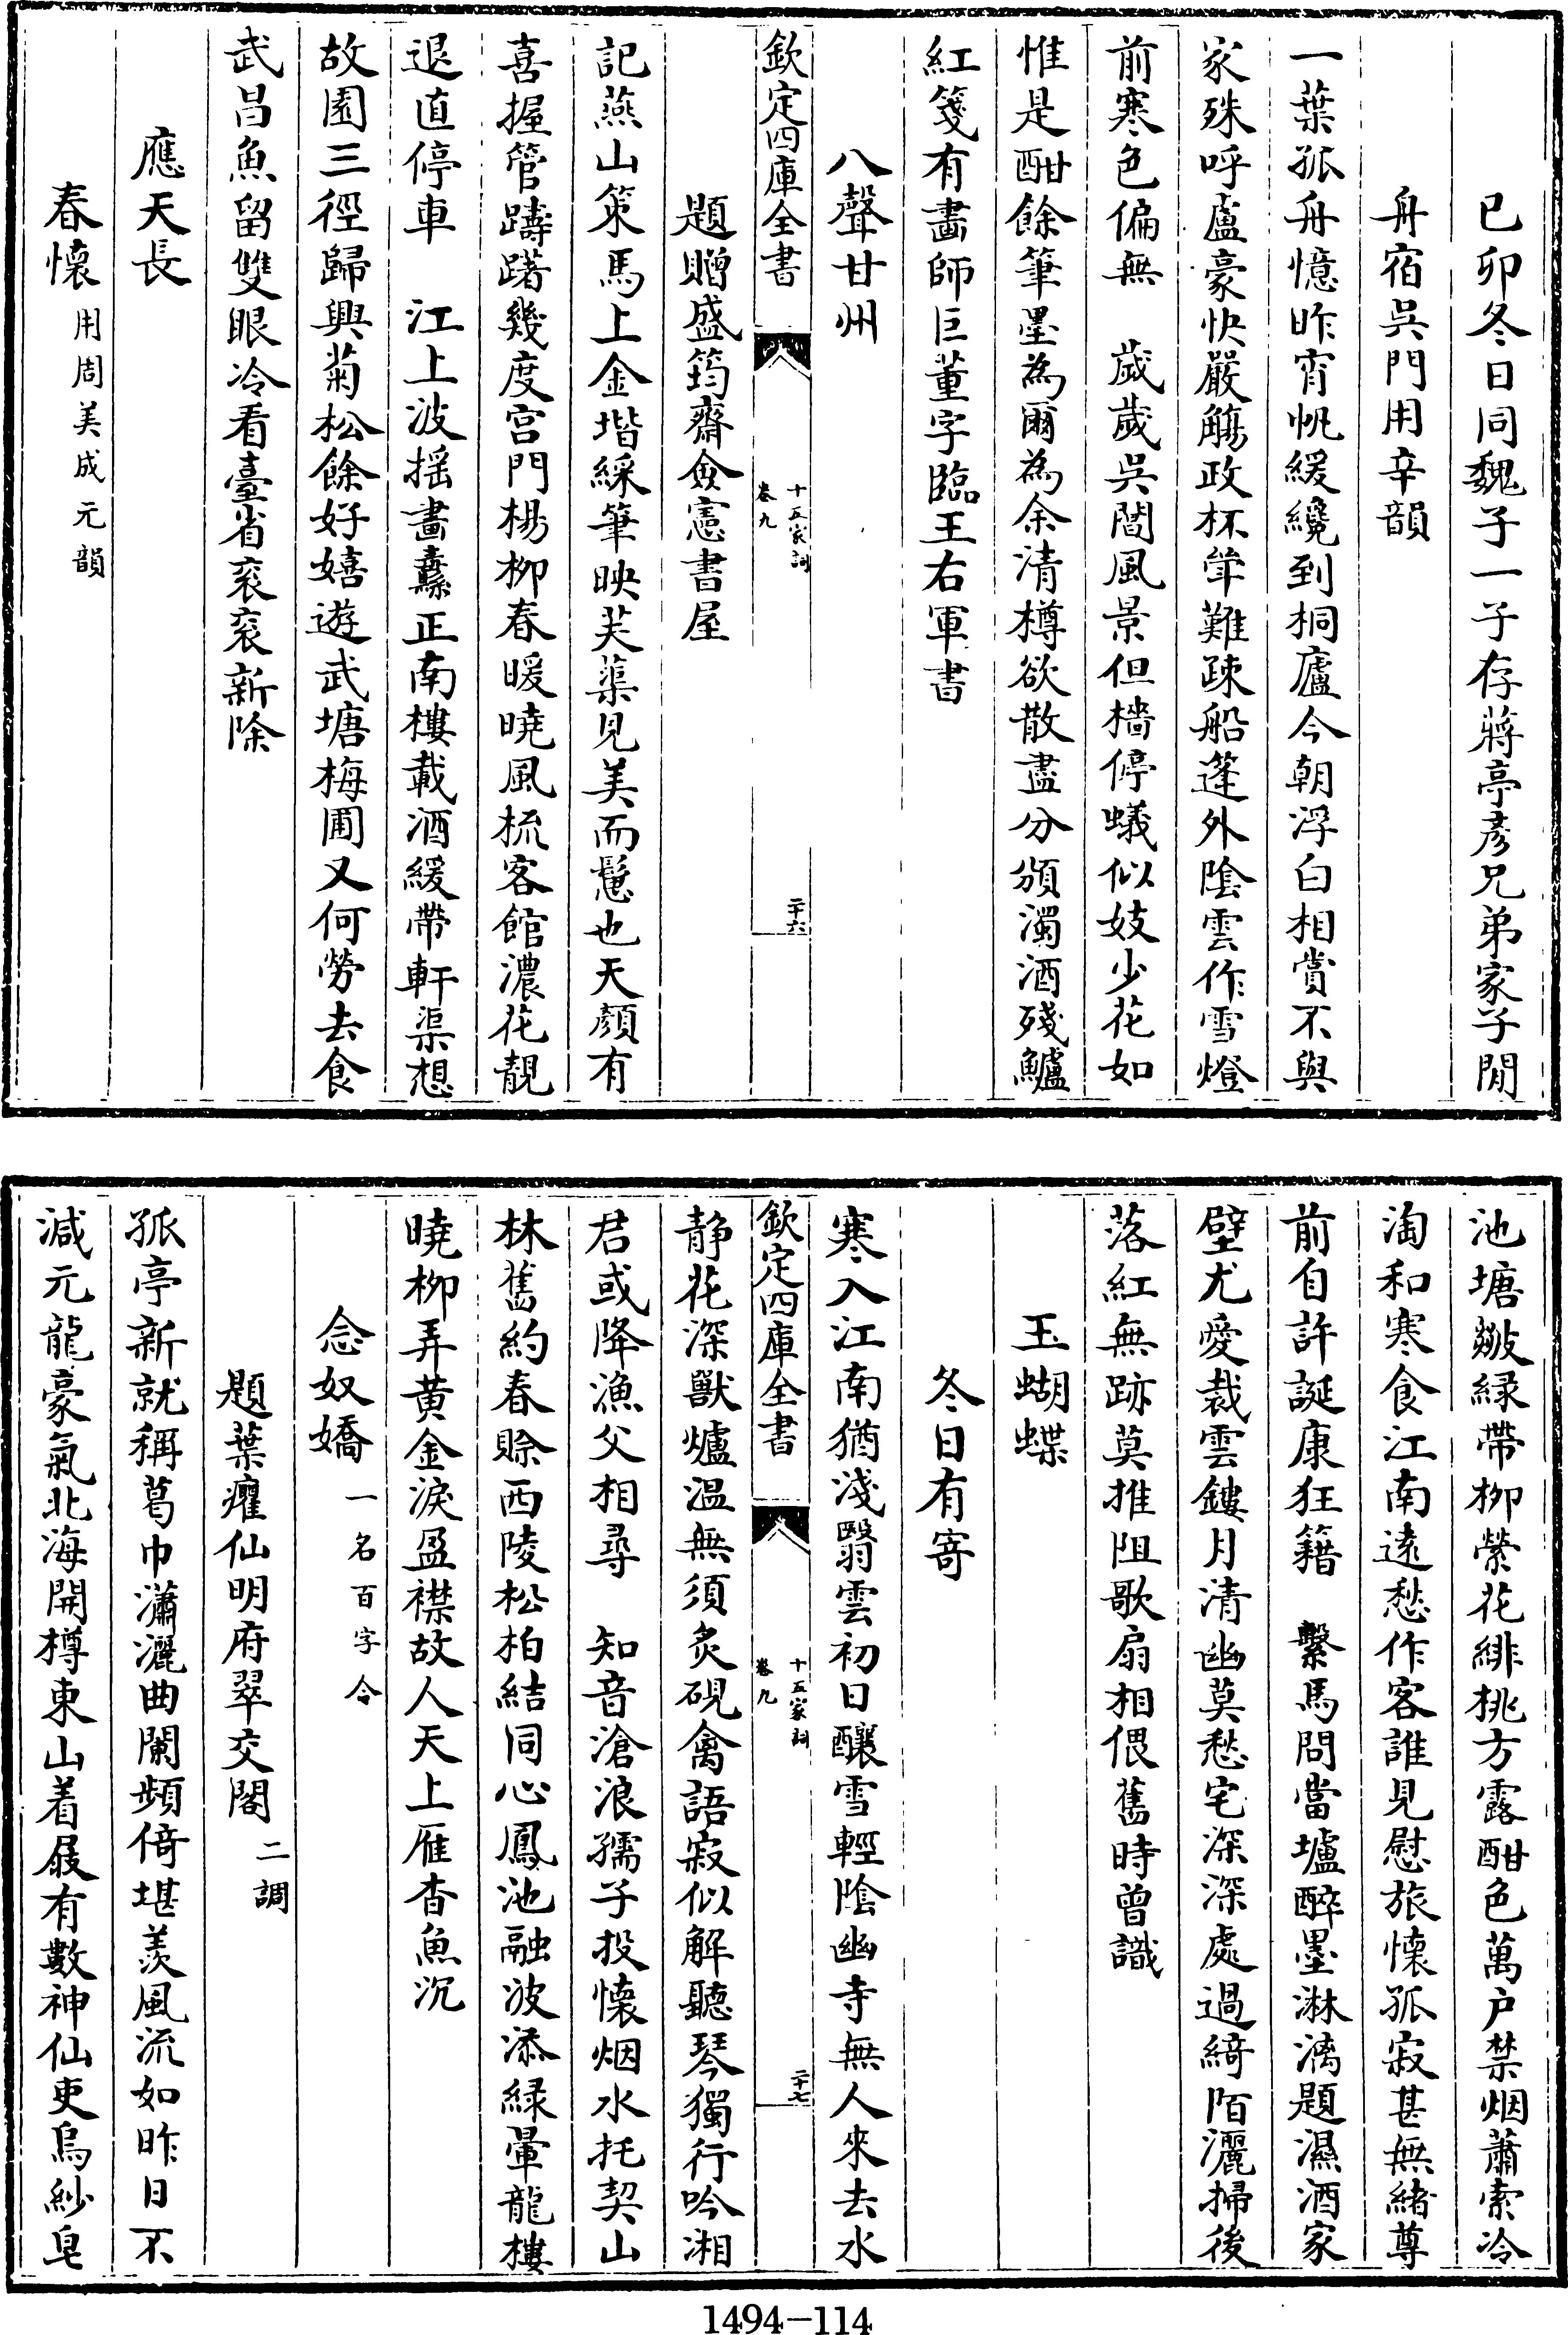 已卯冬日同魏子一子存蔣亭彦兄弟家子閒
舟宿吳門用辛韻
一葉孤舟憶昨宵帆緩纜到桐廬今朝浮白相賞不與
家殊呼盧豪快嚴觴政杯甞難疎船篷外陰雲作雪燈
前寒色偏無　歲歲吳閶風景但檣停蟻似妓少花如
惟是酣餘筆墨為爾為余清樽欲散盡分頒濁酒殘鱸
紅箋有畵師巨董字臨王右軍書
八聲甘州
欽定四庫全書
十五家詞
卷九
二十六
題贈盛筠齋僉憲書屋
記燕山策馬上金堦綵筆映芙蕖見美而鬈也天顏有
喜握管躊躇幾度宫門楊柳春暖曉風梳客館濃花靚
退直停車　江上波揺畵纛正南樓載酒緩帶軒渠想
故園三徑歸興菊松餘好嬉遊武塘梅圃又何勞去食
武昌魚留雙眼冷看臺省衮衮新除
應天長
春懷用周美成元韻
池塘皺緑帶柳縈花緋桃方露酣色萬户禁烟蕭索冷
淘和寒食江南遠愁作客誰見慰旅懷孤寂甚無緒尊
前自許誕康狂籍　繫馬問當壚醉墨淋漓題濕酒家
壁尤愛裁雲鏤月清幽莫愁宅深深處過綺陌灑掃後
落紅無跡莫推阻歌扇相偎舊時曾識
玉蝴蝶
冬日有寄
寒入江南猶淺翳雲初日釀雪輕陰幽寺無人來去水
欽定四庫全書
十五家詞
卷九
二十七
静花深獸爐温無須炙硯禽語寂似解聽琴獨行吟湘
君或降漁父相尋　知音滄浪孺子投懷烟水托契山
林舊約春賒西陵松柏結同心鳳池融波添緑暈龍樓
曉柳弄黄金淚盈襟故人天上雁杳魚沉
念奴嬌一名百字令
題葉癯仙明府翠交閣二調
孤亭新就稱葛巾瀟灑曲闌頻倚堪羡風流如昨日不
減元龍豪氣北海開樽東山着屐有數神仙吏烏紗皂
1494-114